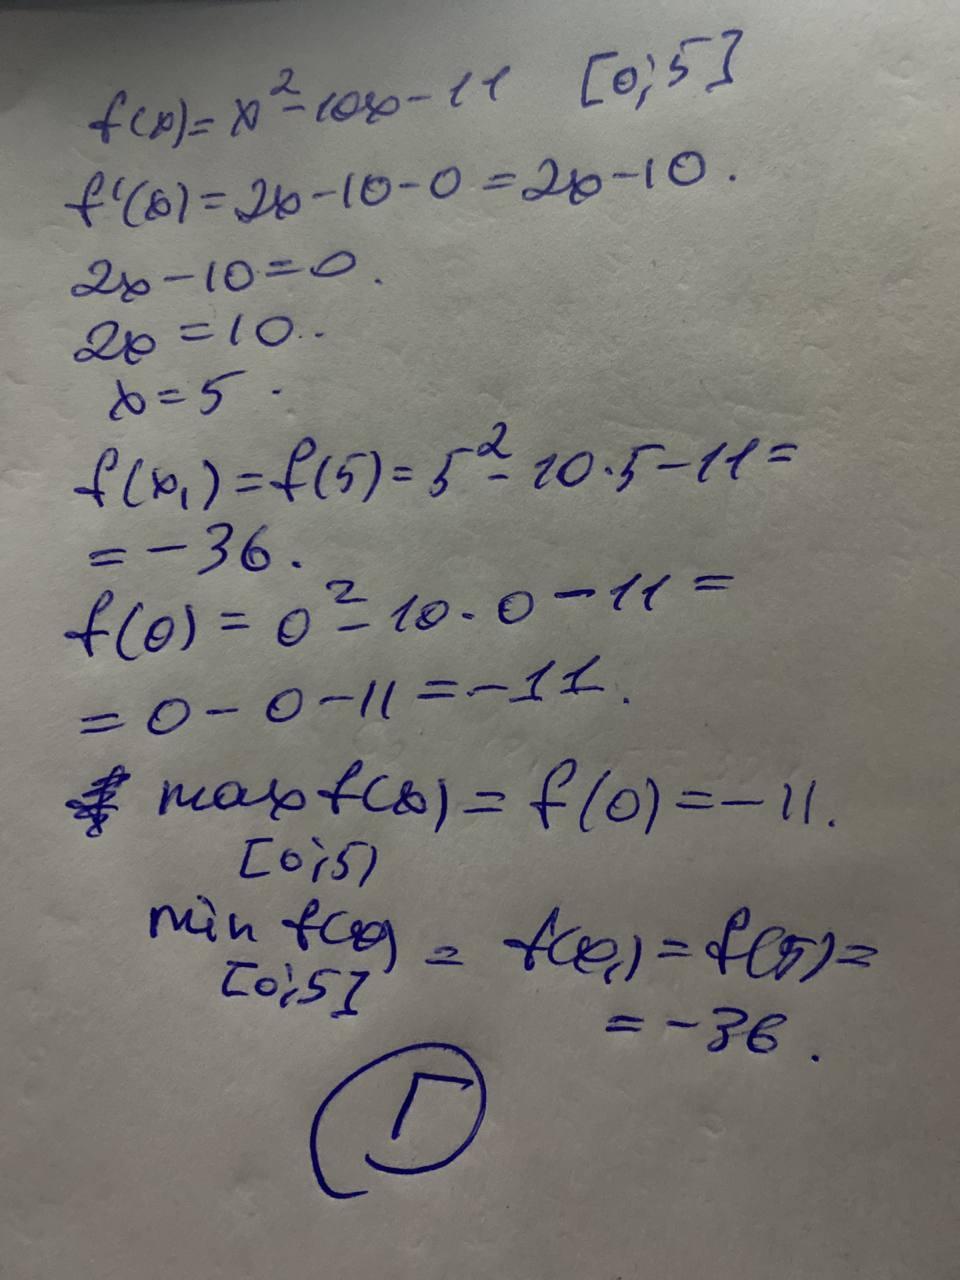 f(x)= x²-10x-11 [0;5]
f'(x)=2x-10-0=2x-10.
2x-10=0.
2x=10..
x=5.
f(x₁)=f(5)=5²-10·5-11=
=-36.
f(0)=0²-10·0-11=
=0-0-11=-11.
max f(x)=f(0)=-11.
[0;5)
min f(x) = f(x₁)=f(5)=
[0;5]
=-36.
Г